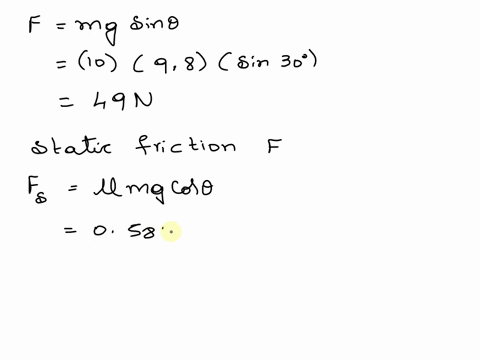 F = mg sinθ
= (10) (9,8) (sin 30°)
= 49N
Static friction F
Fs = μmg cosθ
= 0.58